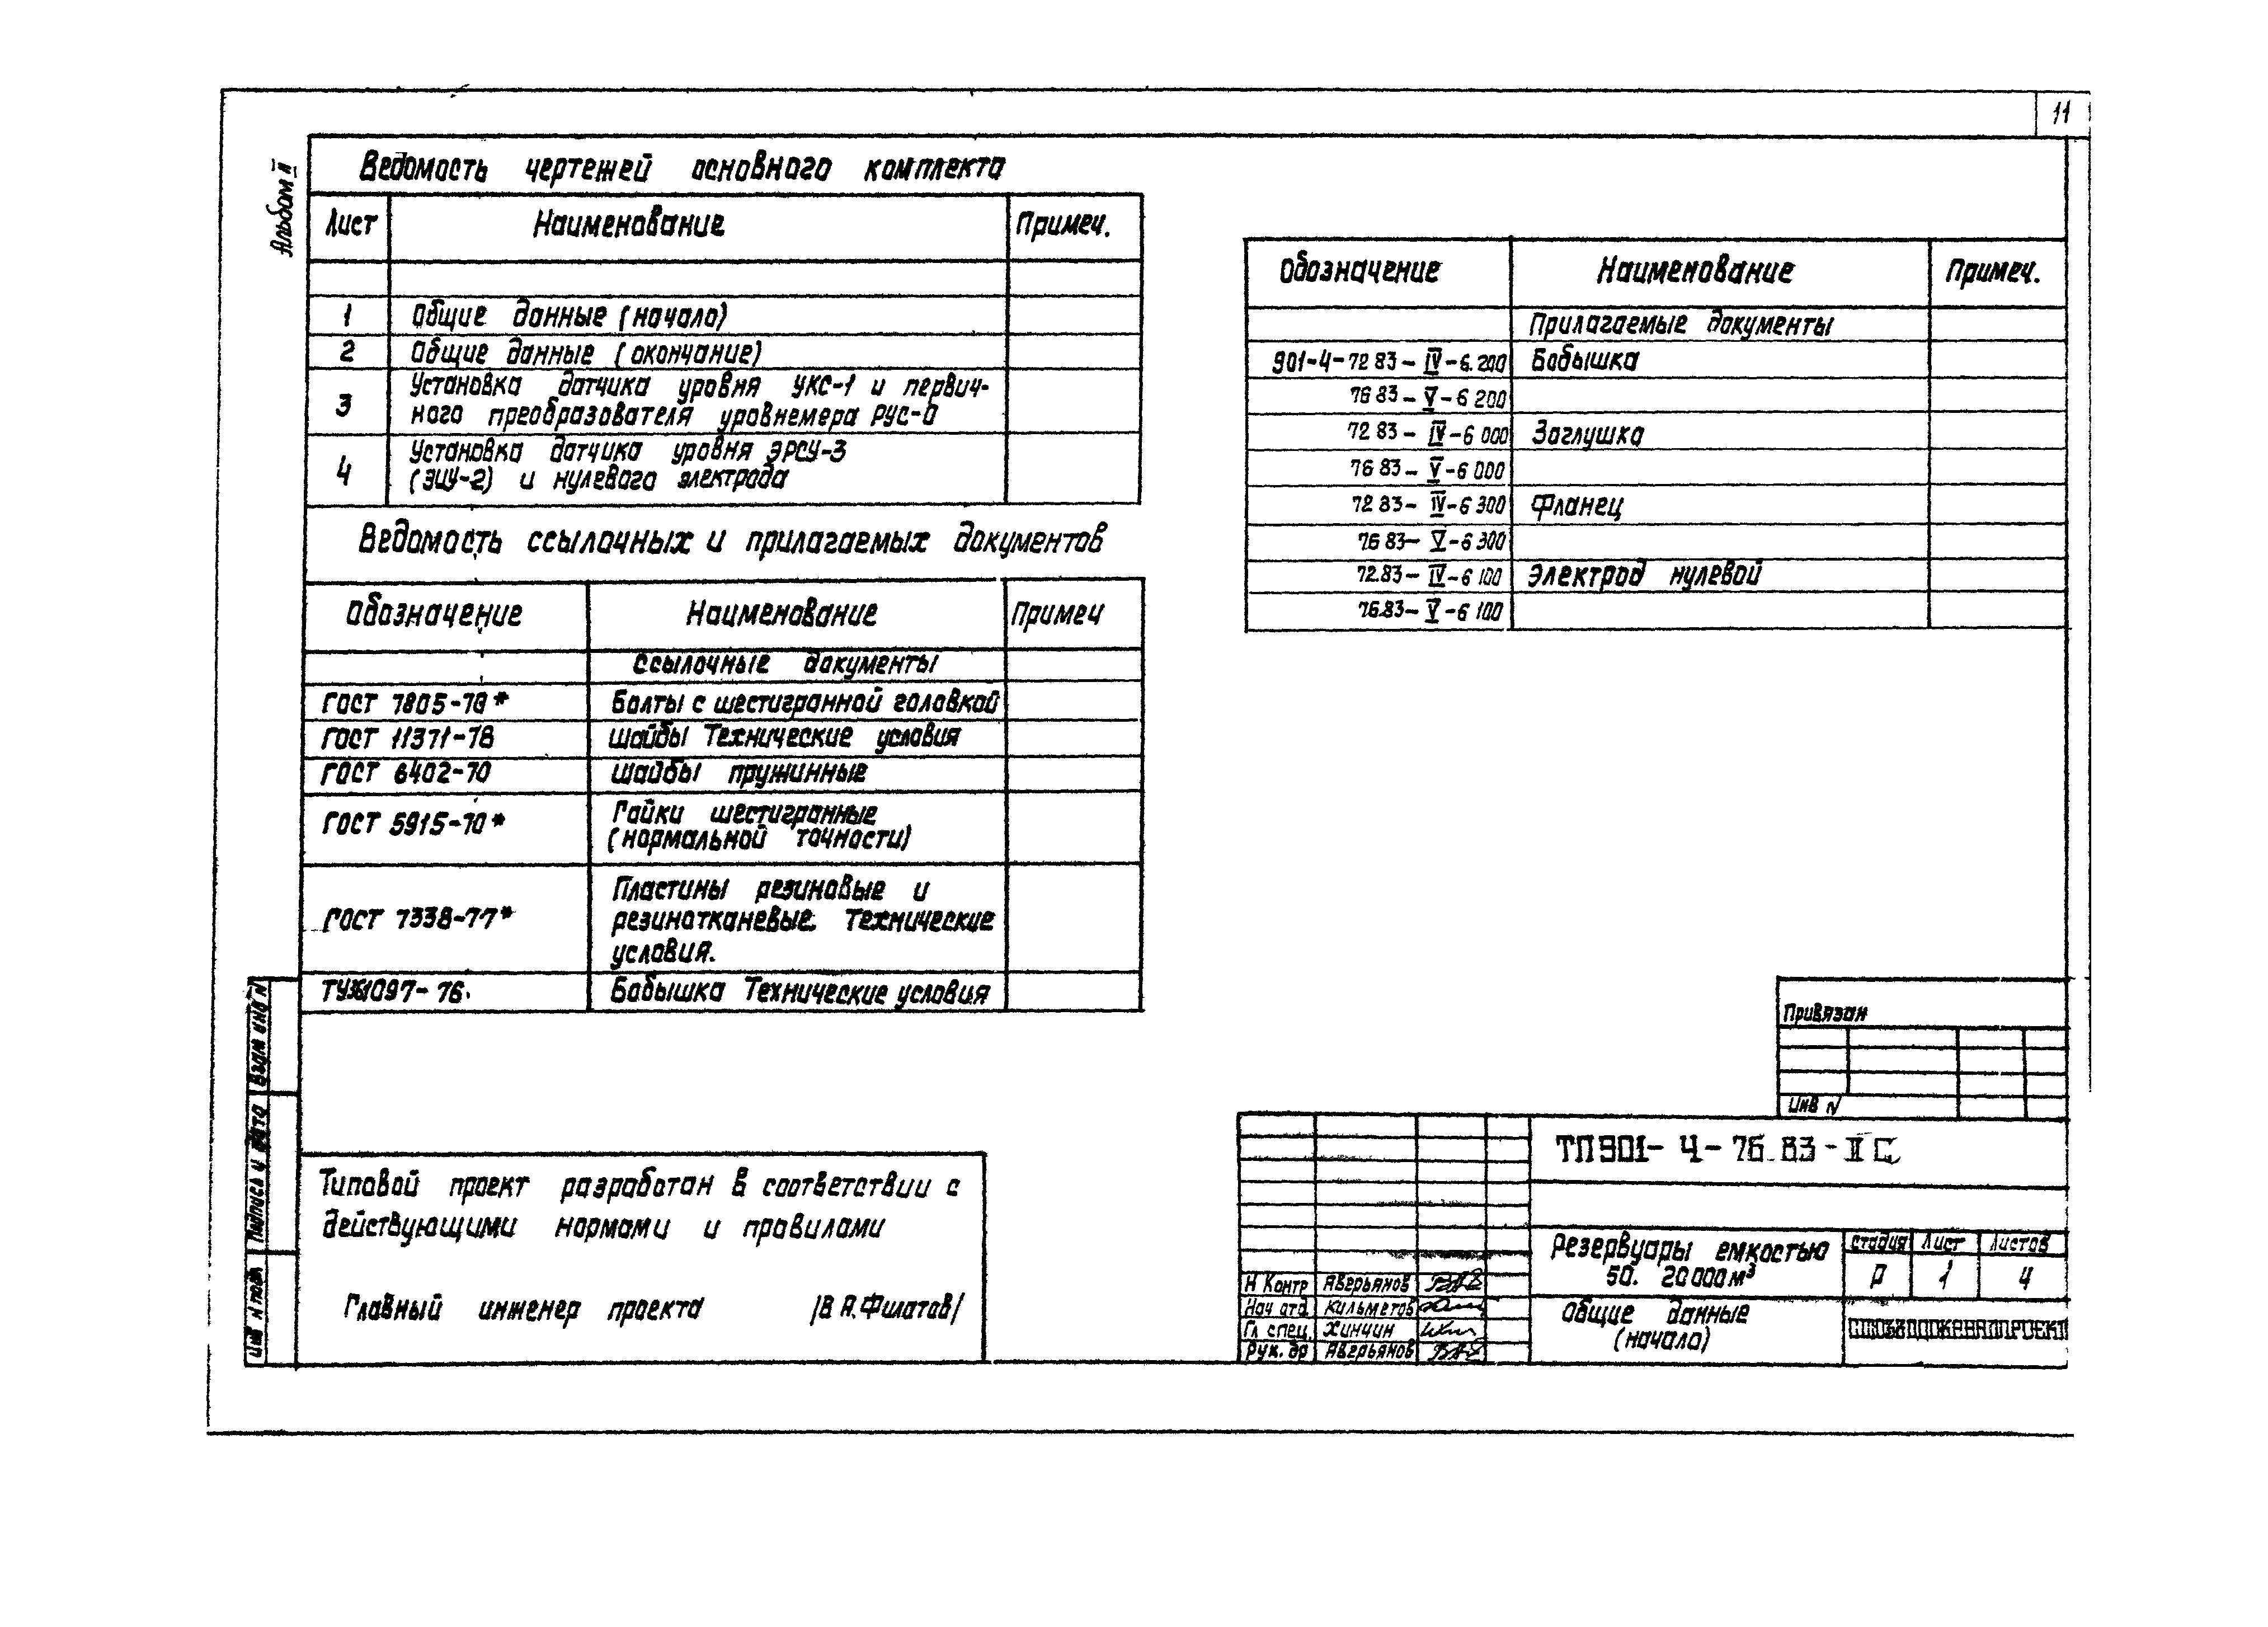 11
Альбом II
Ведомость чертежей основного комплекта
Лист Наименование Примеч.
1 Общие данные (начало)
2 Общие данные (окончание)
3 Установка датчика уровня УКС-1 и первич-
ного преобразователя уровнемера РУС-0
4 Установка датчика уровня ЭРСУ-3
(ЭИУ-2) и нулевого электрода
Ведомость ссылочных и прилагаемых документов
Обозначение Наименование Примеч
Ссылочные документы
ГОСТ 7805-70* Болты с шестигранной головкой
ГОСТ 11371-78 Шайбы Технические условия
ГОСТ 6402-70 Шайбы пружинные
ГОСТ 5915-70* Гайки шестигранные
(нормальной точности)
ГОСТ 7338-77* Пластины резиновые и
резинотканевые. Технические
условия.
1097-76. Бобышка Технические условия
Обозначение Наименование Примеч.
Прилагаемые документы
901-4-72 83-IV-6.200 Бобышка
76 83-V-6 200
72 83-IV-6 000 Заглушка
76 83-V-6 000
72 83-IV-6 300 Фланец
76 83-V-6 300
72.83-IV-6 100 Электрод нулевой
76.83-V-6 100
Типовой проект разработан в соответствии с
действующими нормами и правилами
Главный инженер проекта /В.А.Филатов/
Взам инв N
Подпись и дата
Инв N подл
Привязан
Инв N
ТП 901-4-76.83-II С
Резервуары емкостью
50. 20000 м³
Стадия Лист Листов
Р 1 4
Общие данные
(начало)
СОЮЗВОДОКАНАЛПРОЕКТ
Н Контр Аверьянов
Нач отд. Кильметов
Гл спец. Хинчин
Рук. бр Аверьянов